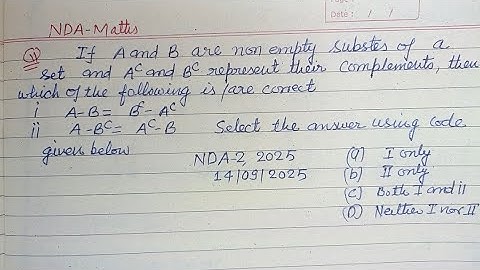 Page :
Date : / /
NDA-Maths
Q If A and B are non empty substes of a
set and Aᶜ and Bᶜ represent their complements, then
which of the following is/are correct
i A-B= Bᶜ-Aᶜ
ii A-Bᶜ= Aᶜ-B Select the answer using code
given below
NDA-2, 2025
14/09/2025
(a) I only
(b) II only
(c) Both I and ii
(D) Neither I nor II